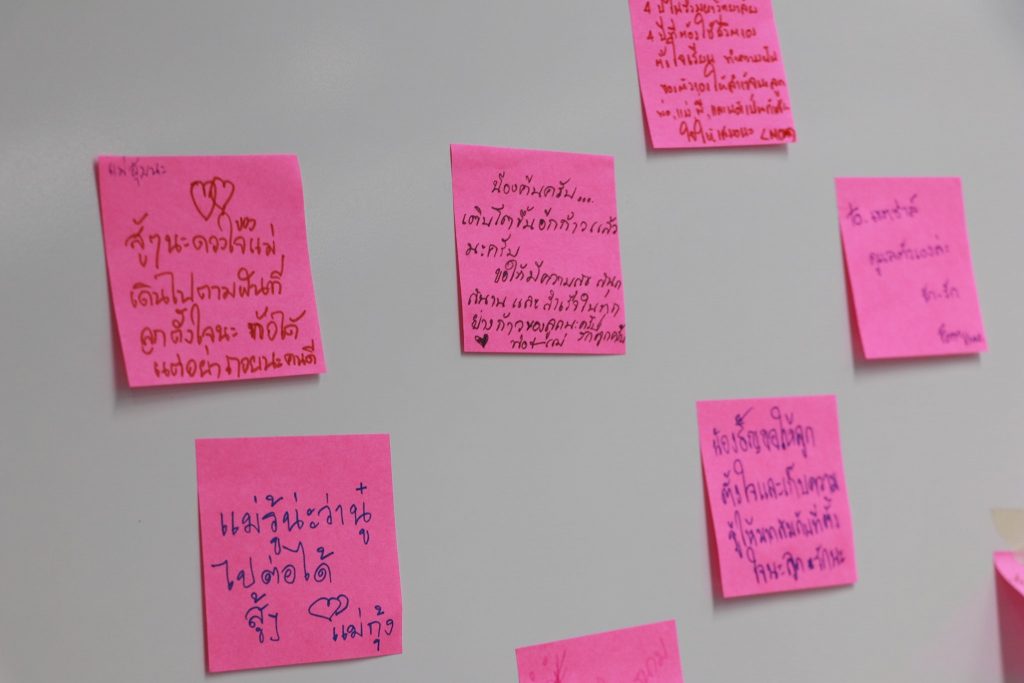 4 ปีที่ต้องใช้ชีวิตเอง
ตั้งใจเรียน ทำความฝัน
ของตัวเองให้สำเร็จนะลูก
พ่อ, แม่, พี่,
ให้เสมอนะ
แม่อุ้มนะ
สู้ๆนะดวงใจของแม่
เดินไปตามฝันที่
ลูกตั้งใจนะ ท้อได้
แต่อย่าถอยนะคนดี
น้องคีนครับ...
เติบโตขึ้นอีกก้าวแล้ว
นะครับ
ขอให้มีความสุข สนุก
สนาน และ สำเร็จในทุก
ย่างก้าวของลูกนะครับ
รักลูกครับ
พ่อ+แม่
ดูแลตัวเองค่ะ
น้องธัญขอให้ลูก
ตั้งใจและเก็บความ
รู้ให้มากสมกับที่ตั้ง
ใจนะลูก รักนะ
แม่รู้น่ะว่านู๋
ไปต่อได้
สู้ๆ
แม่กุ้ง